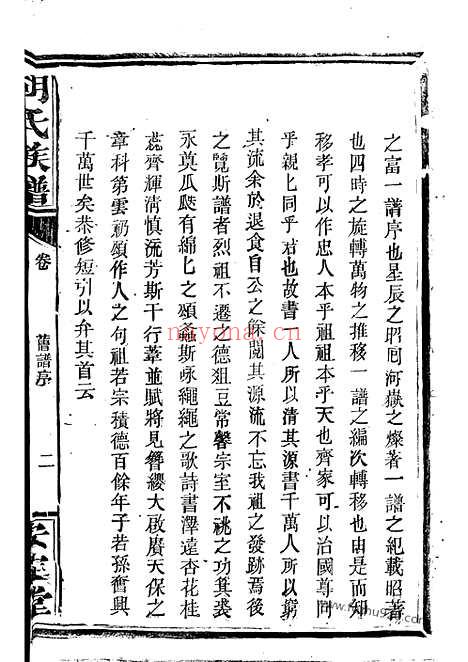 之富一譜序也星辰之昭囘河嶽之燦著一譜之紀載昭著
也四時之旋轉萬物之推移一譜之編次轉移也由是而知
移孝可以作忠人本乎祖祖本乎天也齊家可以治國尊同
乎親匕同乎君也故書一人所以清其源書千萬人所以窮
其流余於退食自公之餘閱其源流不忘我祖之發跡焉後
之覽斯譜者烈祖不遷之德俎豆常馨宗室不祧之功箕裘
永奠瓜瓞有綿匕之頌螽斯咏繩繩之歌詩書澤遠杏花桂
蕊齊輝清慎流芳斯干行葦並賦將見簪纓大啟賡天保之
章科第雲礽頌作人之句祖若宗積德百餘年子若孫奮興
千萬世矣恭修短引以弁其首云
胡氏族譜
卷
舊譜序
二
安定堂
nayona.cn